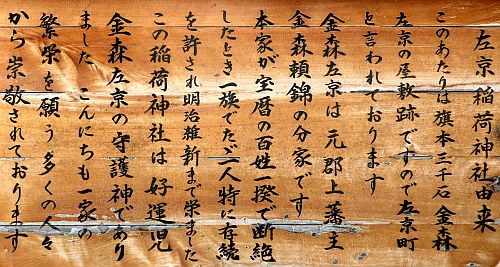 左京稲荷神社由来
このあたりは旗本三千石 金森
左京の屋敷跡ですので左京町
を言われております
金森左京は 元郡上藩主
金森頼錦の分家です
本家が宝暦の百姓一揆で断絶
したとき一族でたゞ一人特に存続
を許され明治維新まで栄ました
この稲荷神社は 好運児
金森左京の守護神であり
ました こんにちも一家の
繁栄を願う多くの人々
から崇敬されております